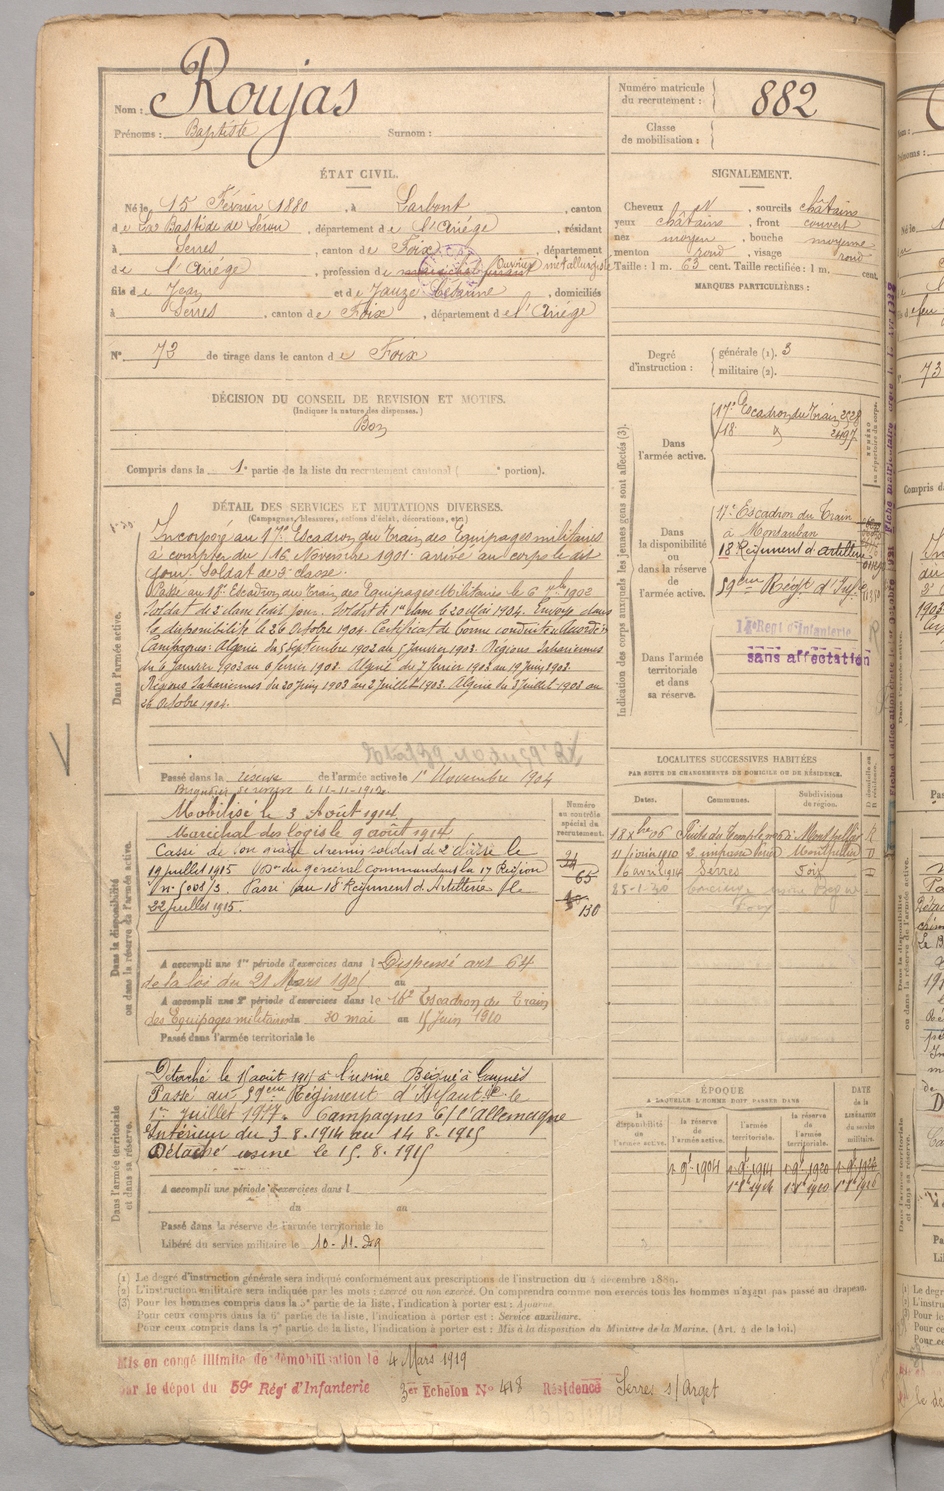 Nom : Roujas
Prénoms : Baptiste Surnom :
Numéro matricule du recrutement : 882
Classe de mobilisation :
ÉTAT CIVIL.
Né le 15 Février 1880, à Larbont, canton
de La Bastide de Sérou, département de l'Ariége, résidant
à Serres, canton de Foix, département
de l'Ariége, profession de Ouvrier métallurgiste
fils de Jean et de Cézanne, domiciliés
à Serres, canton de Foix, département de l'Ariége
N° 73 de tirage dans le canton de Foix
DÉCISION DU CONSEIL DE REVISION ET MOTIFS.
(Indiquer la nature des dispenses.)
Bon
Compris dans la 1e partie de la liste du recrutement cantonal ( e portion).
SIGNALEMENT.
Cheveux , sourcils châtains
yeux châtains, front couvert
nez moyen, bouche moyenne
menton rond, visage rond
Taille : 1 m. 63 cent. Taille rectifiée : 1 m. cent.
MARQUES PARTICULIÈRES :
Degré d'instruction : générale (1). 3
militaire (2).
Indication des corps auxquels les jeunes gens sont affectés (3).
Dans l'armée active.
17e Escadron du Train 2528
18
Dans la disponibilité ou dans la réserve de l'armée active.
17e Escadron du Train
à Montauban
18 Régiment d'artillerie
59eme Régt d'Infie
Dans l'armée territoriale et dans sa réserve.
14e Regt d'Infanterie
sans affectation
DÉTAIL DES SERVICES ET MUTATIONS DIVERSES.
(Campagnes, blessures, actions d'éclat, décorations, etc.)
Dans l'armée active.
Incorporé au 17e Escadron du Train des Equipages militaires
à compter du 16 Novembre 1901. arrivé au corps le dit
jour. Soldat de 2e classe.
Passé au 18e Escadron du Train des Equipages Militaires le 6 1902
Soldat de 2e classe ledit jour. Soldat de 1re classe le 20 Mai 1904. Envoyé dans
la disponibilité le 26 Octobre 1904. Certificat de bonne conduite Accordé
Campagnes : Algérie du 5 Septembre 1902 au 5 Janvier 1903. Régions Sahariennes
du 6 Janvier 1903 au 6 février 1903. Algérie du 7 février 1903 au 19 Juin 1903.
Régions Sahariennes du 20 Juin 1903 au 2 Juillet 1903. Algérie du 3 Juillet 1903 au
26 Octobre 1904.
Passé dans la réserve de l'armée active le 1er Novembre 1904
Dans la disponibilité ou dans la réserve de l'armée active.
Brigadier de réserve le 11-11-1912.
Mobilisé le 3 Août 1914
Maréchal des logis le 9 août 1914.
Cassé de son grade et remis soldat de 2e classe le
19 juillet 1915 du général commandant la 17 Région
n° 5008/3. Passé au 18 Régiment d'Artillerie le
22 juillet 1915.
Numéro au contrôle spécial du recrutement.
65
130
A accompli une 1re période d'exercices dans l Dispensé art 64
de la loi du 21 Mars 1905 au
A accompli une 2e période d'exercices dans le 16e Escadron du Train
des Equipages militaires du 30 mai au 15 Juin 1910
Passé dans l'armée territoriale le
LOCALITÉS SUCCESSIVES HABITÉES
PAR SUITE DE CHANGEMENTS DE DOMICILE OU DE RÉSIDENCE.
Dates. Communes. Subdivisions de région. D domicile ou R résidence.
18 Xbre 06 Montpellier R
11 janvier 1910 2 impasse Montpellier D
16 avril 1914 Serres Foix D
25-1-30 Concierge usine
Foix
Dans l'armée territoriale et dans sa réserve.
Détaché le 15 août 1915 à l'usine Bégué à
Passé au 59eme Régiment d'Infanterie le
1er Juillet 1917. Campagnes C/ l'Allemagne
Intérieur du 3.8.1914 au 14.8.1915
Détaché usine le 15.8.1915
A accompli une période d'exercices dans l
du au
Passé dans la réserve de l'armée territoriale le
Libéré du service militaire le 10-11-29
ÉPOQUE
A LAQUELLE L'HOMME DOIT PASSER DANS
la disponibilité de l'armée active. la réserve de l'armée active. l'armée territoriale. la réserve de l'armée territoriale. DATE de la LIBÉRATION du service militaire.
1 9bre 1904 1 9bre 1914 1 9bre 1920 1 9bre 1926
(1) Le degré d'instruction générale sera indiqué conformément aux prescriptions de l'instruction du 4 décembre 1889.
(2) L'instruction militaire sera indiquée par les mots : exercé ou non exercé. On comprendra comme non exercés tous les hommes n'ayant pas passé au drapeau.
(3) Pour les hommes compris dans la 5e partie de la liste, l'indication à porter est : Ajourné.
Pour ceux compris dans la 6e partie de la liste, l'indication à porter est : Service auxiliaire.
Pour ceux compris dans la 7e partie de la liste, l'indication à porter est : Mis à la disposition du Ministre de la Marine. (Art. 4 de la loi.)
Mis en congé illimité de démobilisation le 4 Mars 1919
par le dépot du 59e Régt d'Infanterie 3er Echelon N° 418 Résidence Serres s/ Arget